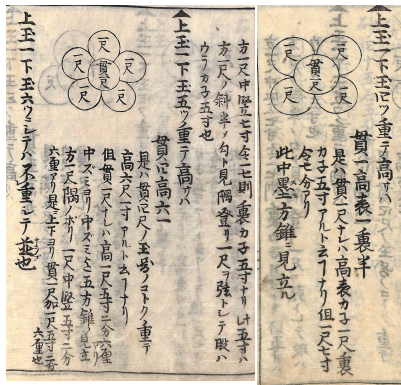 ▲上玉一下玉四ツ重テ高サハ
一尺
一尺
貫一尺
一尺
一尺
貫一高表一裏半
是ハ貫一尺ナレハ高表カ子一尺裏
カ子五寸アルト云フナリ但一尺七寸
令七分ナリ
此中墨方錐ニ見立ル
方一尺中竪七寸令七則裏カ子五寸ナリ此五寸ハ
方一尺ノ斜半ヲ勾ト見隅登リ一尺ヲ弦トシテ股ハ
ウラカ子五寸也
▲上玉一下玉五ツ重テ高サハ
一尺
一尺
一尺
貫一尺
一尺
一尺
貫六高六一
是ハ貫六尺ノ玉ヲコトク重テ
高六尺一寸アルト云フナリ
但貫一尺ナレハ高一尺五寸二分六厘
中ズミヨリ中ズミマテ五方錐ノ見立
方一尺隅ノボリ一尺中竪五寸二分
六厘アリ是ヘ上下ヨリ貫一尺加一尺五寸二分
六厘也
▲上玉一下玉六ツシテハ不重シテ並也